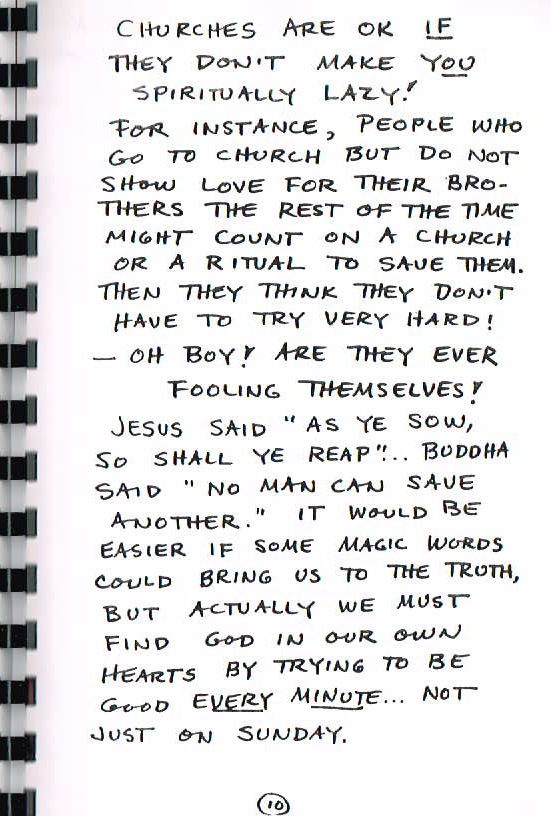 CHURCHES ARE OK IF
THEY DON'T MAKE YOU
SPIRITUALLY LAZY!
FOR INSTANCE, PEOPLE WHO
GO TO CHURCH BUT DO NOT
SHOW LOVE FOR THEIR BRO-
THERS THE REST OF THE TIME
MIGHT COUNT ON A CHURCH
OR A RITUAL TO SAVE THEM.
THEN THEY THINK THEY DON'T
HAVE TO TRY VERY HARD!
— OH BOY! ARE THEY EVER
FOOLING THEMSELVES!
JESUS SAID "AS YE SOW,
SO SHALL YE REAP"!.. BUDDHA
SAID "NO MAN CAN SAVE
ANOTHER." IT WOULD BE
EASIER IF SOME MAGIC WORDS
COULD BRING US TO THE TRUTH,
BUT ACTUALLY WE MUST
FIND GOD IN OUR OWN
HEARTS BY TRYING TO BE
GOOD EVERY MINUTE... NOT
JUST ON SUNDAY.
10